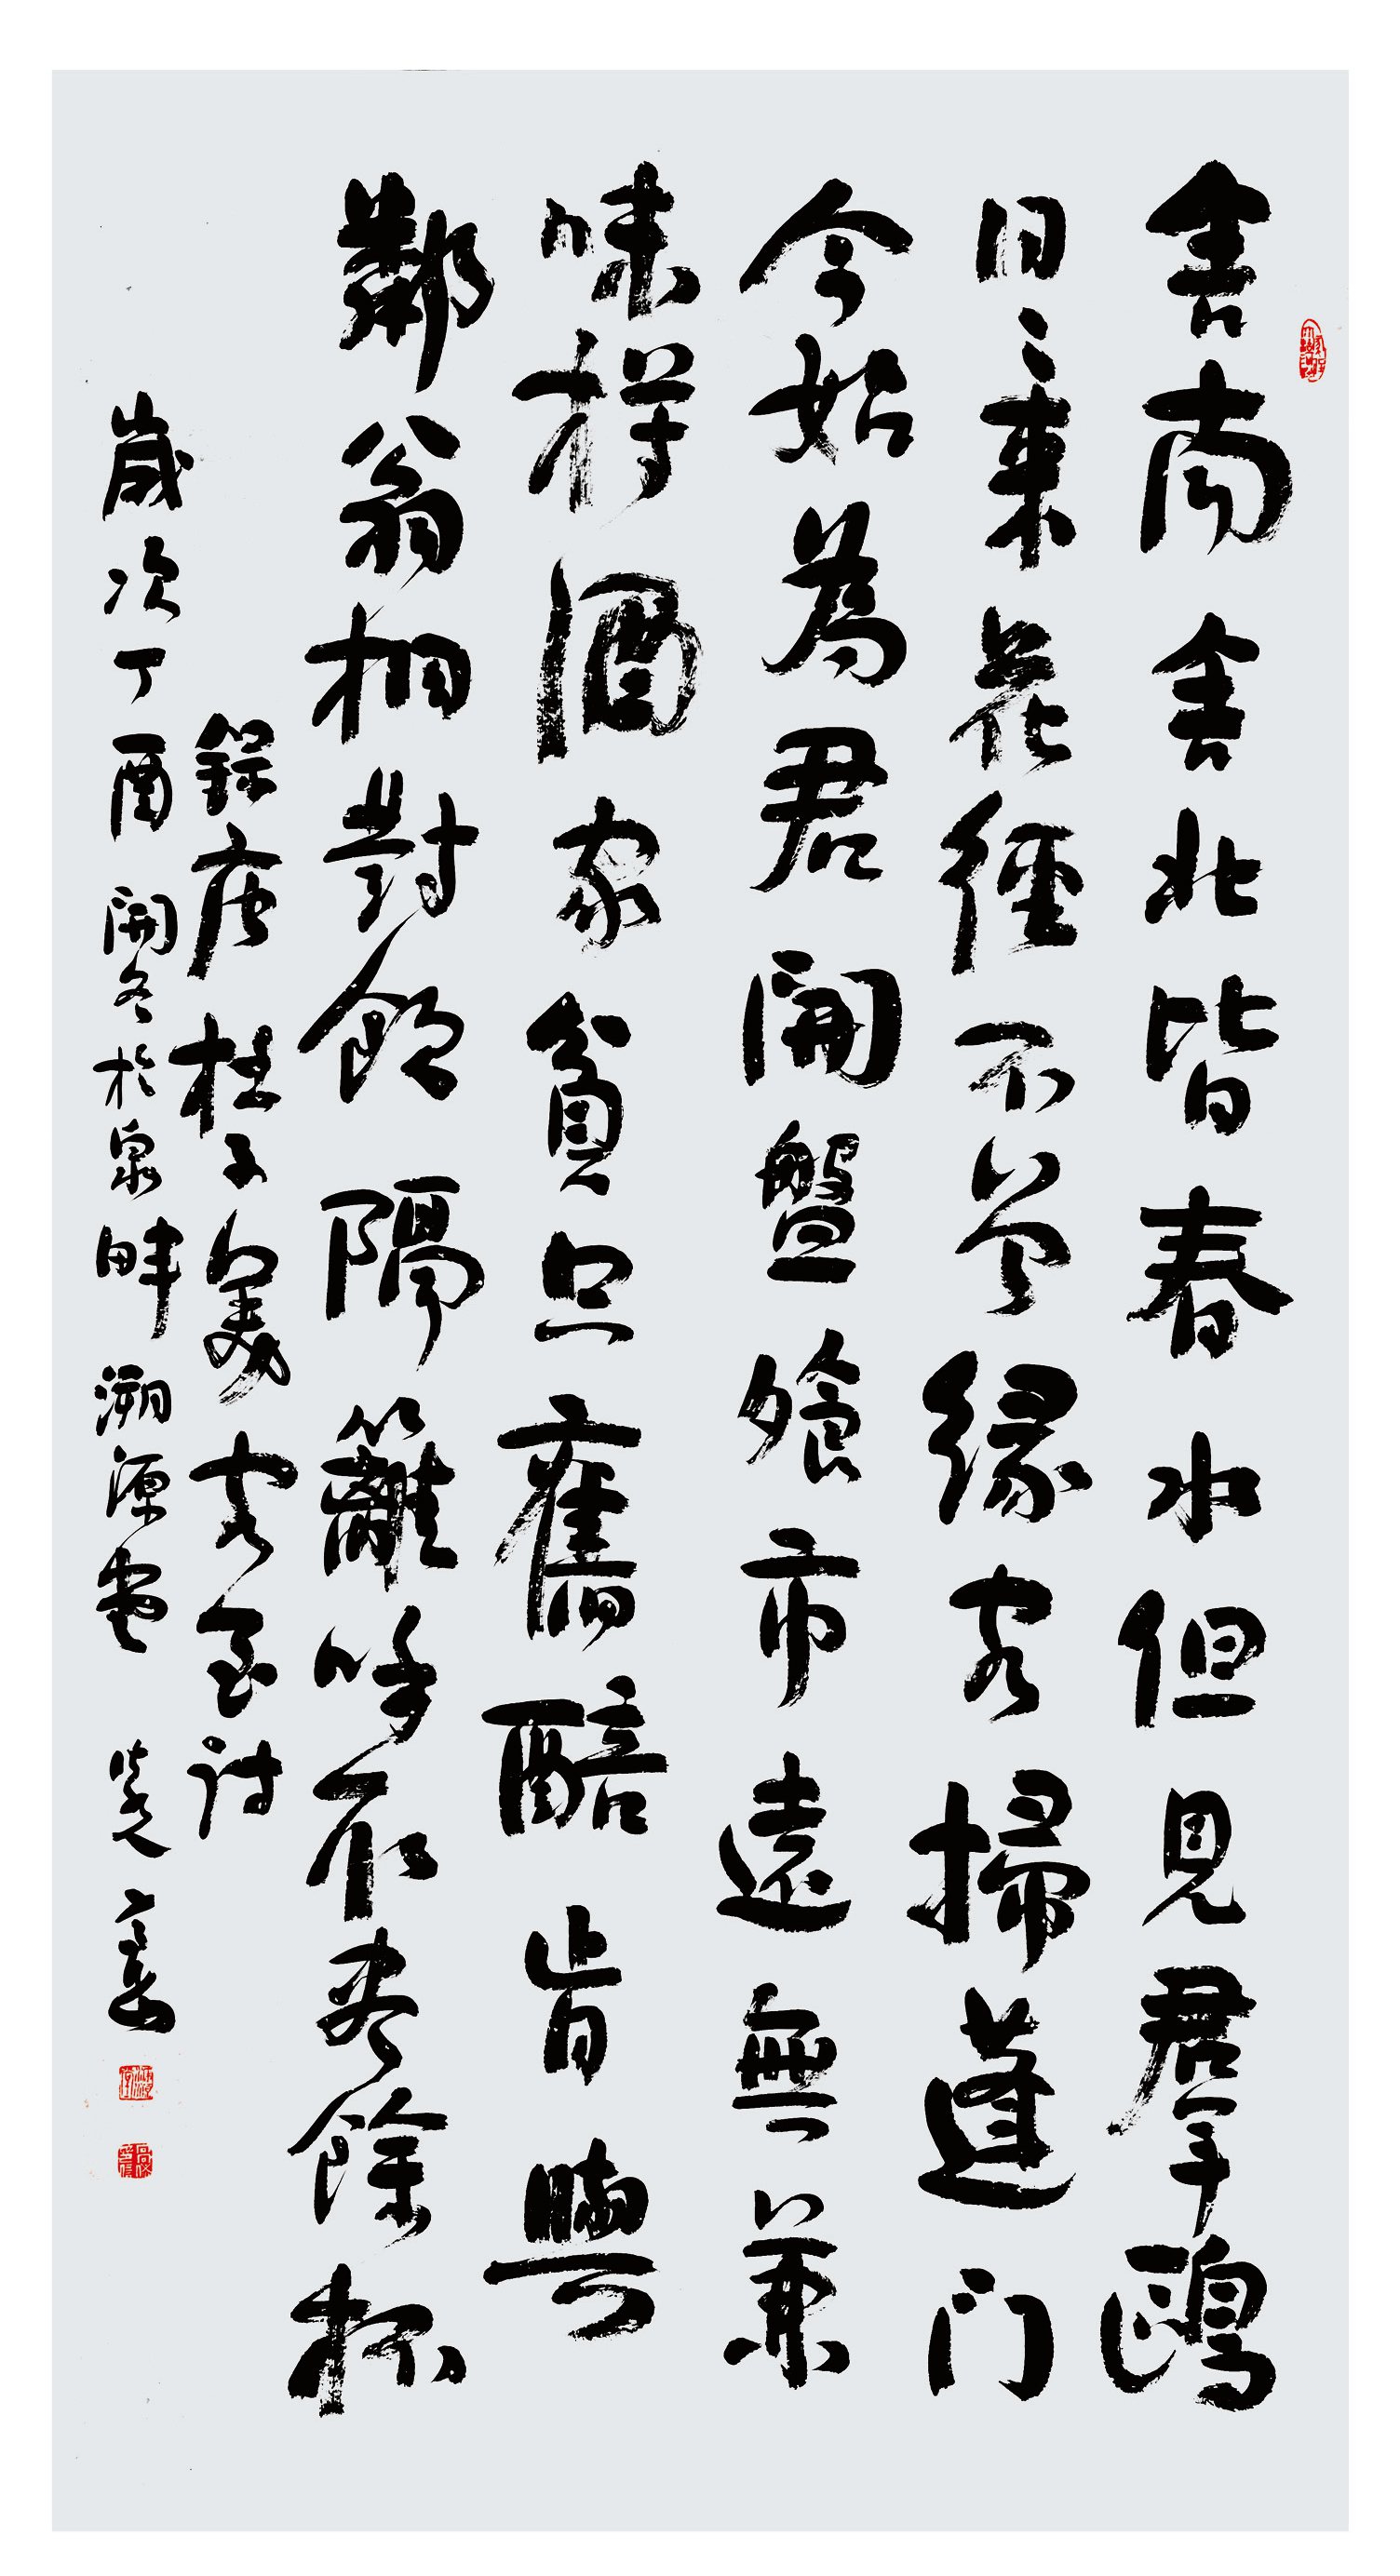 舍南舍北皆春水但見羣鷗
日々來花徑不曾緣客掃蓬门
今始為君開盤飧市遠無兼
味樽酒家貧只舊醅肯與
鄰翁相對飲隔籬呼取盡餘杯
錄唐杜子美客至詩
歲次丁酉開冬於泉畔溯源堂